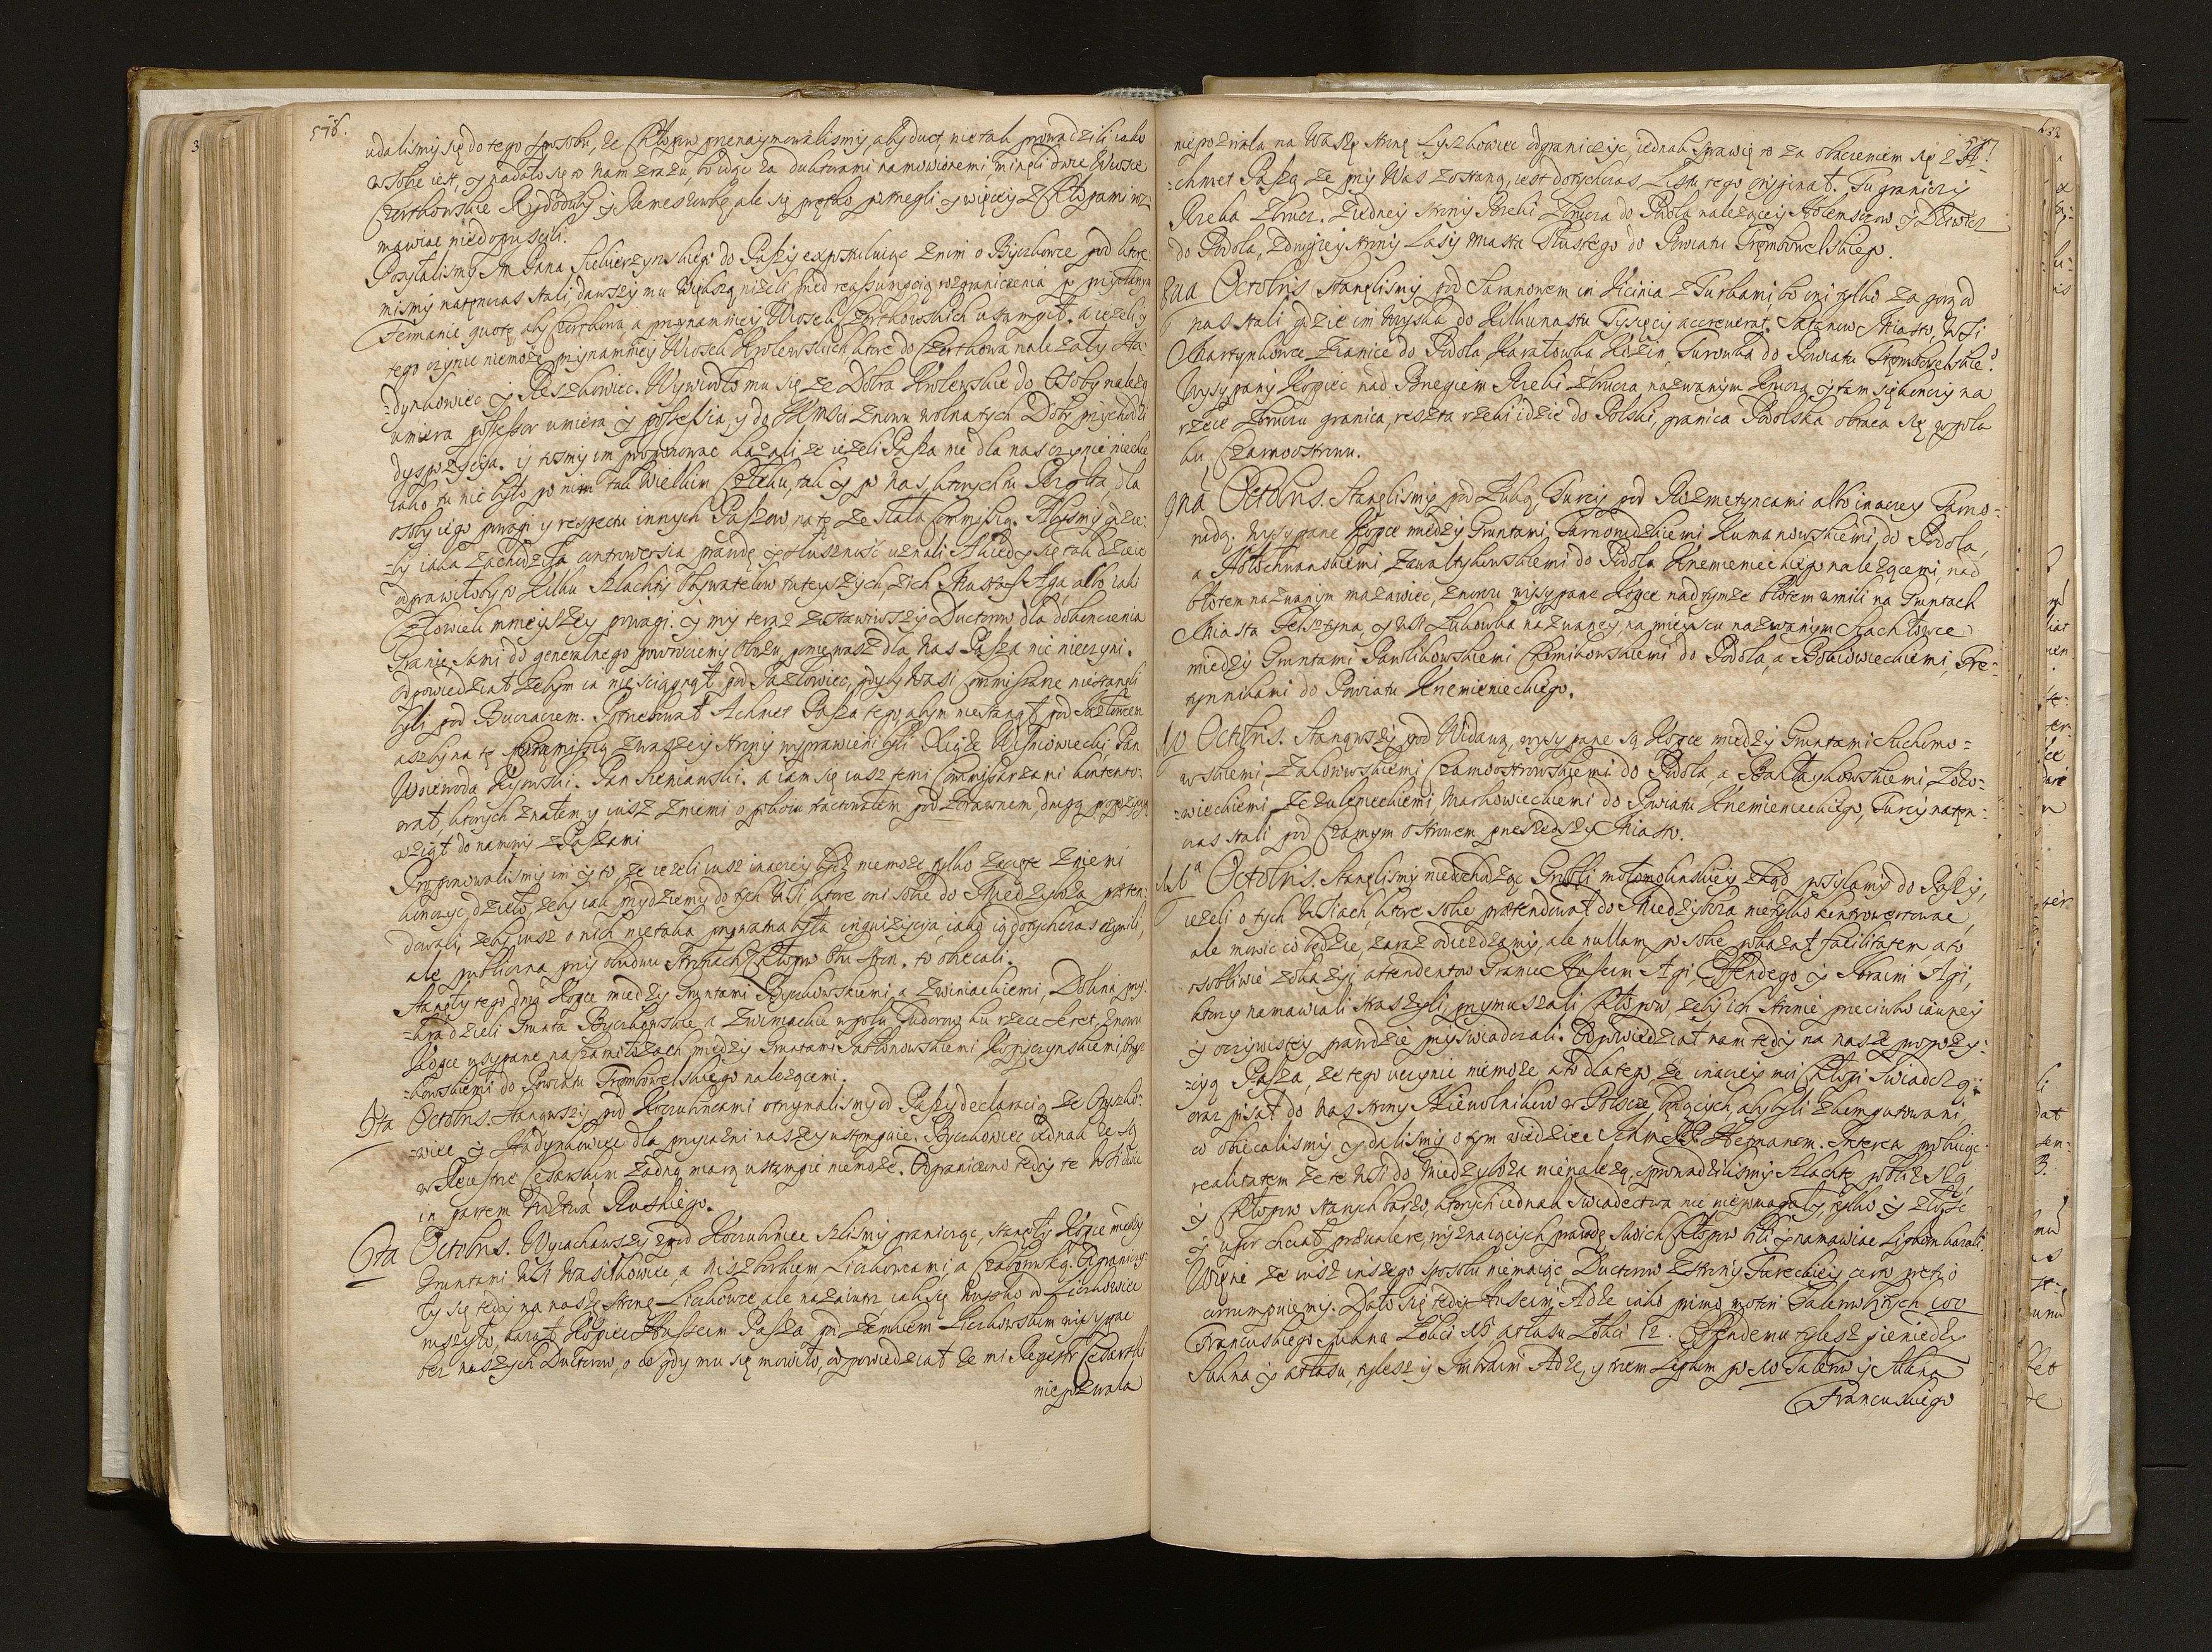 576.
udalismy się do tego sposobu, że Chłopow przenaymowalismy, aby duct nie tak prowadzili iako
w sobie iest, y nadało się to nam zrazu bo idąc za duktorami namowionemi mineli dwie Wiosce
Czortkowskie Rydoduby y Romaszowkę, ale się prętko postrzegli y więcey z Chłopami roz-
mawiac niedopuscili.
Posyłalismy Pana Siekierzynskiego do Paszy expostuluiąc z nim o Byczkowce pod ktore-
mismy natenczas stali, dawszy mu większą niżeli przed reassumpcią rozgraniczenia po przysłanym
Fermanie quotę aby Czortkowa, a przynamniey Wiosek Czortkowskich ustąpił. a ieżeli y
tego czynic niemoże przynamniey Wiosek Krolewskich ktore do Czortkowa należały Ha-
dynkowiec y Oryszkowiec. Wywiodło mu się że Dobra Krolewskie do Osoby należą
umiera possessor umiera y possessia, y do JKMsci znowu wolna tych Dobr przychodzi
dyspozycya. y tosmy im proponowac kazali że ieżeli Pasza nic dla nas czynic niechce
iako tu nic było po nim tak wielkim Człeku, tak y po nas, ktorych tu Porta dla
osoby iego powagi y respectu innych Paszow na tę zesłała Commisią. Abysmy gdzie-
by iaka zachodziła controwersia prawdę y słusznosc uznali A kiedy się tak dzieie
odprawiłoby to kilku Szlachty Obywatelow tuteyszych, z ich Mustaf Aga, albo iaki
Człowiek mnieyszey powagi. y my teraz zostawiwszy Ductorow dla dokonczenia
Granic sami do generalnego powrociemy Obozu, ponieważ dla nas Pasza nic nieczyni.
odpowiedział żebym ia nie sciągnął pod Jazłowiec, gdyby Wasi Commisarze niestaneli
byli pod Buczaczem. Potrzebował Achmet Pasza tego, abym niestanął pod Jazłowcem
aczby na tę Commisią z waszey strony wyprawieni byli Xiąże Wisniowiecki Pan
Woiewoda Kiiowski. Pan Sieniawski. a iam się iusz temi Commissarzami kontento-
wał, ktorych znałem y iusz z niemi o pokoiu tractowałem pod Żorawnem, drugą propozycyą
wziął do namowy z Paszami
Proponowalismy im y to, że ieżeli iusz inaczey bydz niemoże tylko zacząte z niemi
konczyc dzieło, żeby iak przydziemy do tych Wsi ktore oni sobie do Miedzyboża preten-
dowali, żeby iusz o nich nietaka prywatna była inquizycya, iako ią dotychczas czynili,
ale publiczna przy obudwu Stronach Chłopow obu stron. to obiecali.
Stanęły tego dnia Kopce miedzy Gruntami Byczkowskiemi, a Zwiniackiemi, Dolina prze-
-kradzieli Grunta Byczkowskie, a Zwiniackie w polu Gudorow ku rzece Seret znowu
Kopce usypane na szamilozach miedzy Gruntami Jabłonowskiemi Kopyczynskiemi Orysz-
-kowskiemi do Powiatu Trębowelskiego należącemi.
5ta Octobris. Stanąwszy pod Kociubincami otrzymalismy od Paszy declaracią że Oryszko-
-wiec y Hadynkowiec dla przyiazni naszey ustępuie. Byczkowiec iednak że są
w Reiestrze Cesarskim żadną miarą ustąpic niemoże. Odgraniczono tedy te Wsi dwie
in partem Wdztwa Ruskiego.
6ta Octobris. Wyiachawszy z pod Kociubiniec szlismy granicząc, stanęły Kopce miedzy
Gruntami Wsi Wasilkowiec, a Niszborkiem, Liczkowcami, a Czabarowką. Ograniczy-
ły się tedy na naszę stronę Liczkowce, ale nazaiutrz iak się Woysko od Liczkowiec
ruszyło, kazał Kopiec Hussein Pasza pod Zamkiem Liczkowskim wysypac
bez naszych Ducktorow, o co gdy mu się mowiło, odpowiedział że mi Regestr Cesarski
niepozwala
577.
niepozwala na Waszę stronę Lyczkowiec odgraniczyc, iednak sprawię to za obaczeniem się z A-
-chmet Paszą że przy Was zostaną, iest dotychczas Listu tego oryginał. Tu graniczy
Rzeka Zbrucz. Z iedney strony Rzeki Zbrucza do Podola należącey
do Podola, z drugiey strony Lasy Miasta Tłustego do Powiatu Trębowelskiego.
8va Octobris stanęlismy pod Saranowem in Vicinia z Turkami bo oni tylko za gorą od
nas stali gdzie im Woyska do kilkunastu Tysięcy accreverat. Satanow Miasto, Wsi
Martynkowce Zianice do Podola Karatowka Kozin, Turowka do Powiatu Trębowelskie°
Wysypany Kopiec nad Brzegiem Rzeki Zbrucza nazwanym Krucza y tam się konczy na
rzece Zbruczu granica, reszta rzeki idzie do Polski, granica Podolska obraca się w pole
ku Czarnoostrowu.
9na Octobris. Stanęlismy pod Zubą, Turcy pod Kuzmetyncami albo inaczey Tarno-
rudą. Wysypane Kopce miedzy Gruntami Tarnorudzkiemi Kumanowskiemi, do Podola,
a Hołochwanskiemi Zawałtykowskiemi do Podola Krzemienieckiego należącemi, nad
błotem nazwanym mazawiec, znowu wysypane Kopce nad tymże błotem w mili na Gruntach
Miasta Felsztyna, y Wsi Zubowka nazwaney, na mieyscu nazwanym Stachłowce
miedzy Gruntami Pawlikowskiemi Klimkowskiemi do Podola, a Bokiiowieckiemi, Tre-
tynnikami do Powiatu Krzemienieckiego.
10 Octobris. Stanąwszy pod Widawą, wysypane są Kopce miedzy Gruntami Suchomo-
wskiemi, Zakowowskiemi Czarnoostrowskiemi do Podola, a Bakłaykowskiemi, Zoło-
-wieckiemi, Zezuleneckiemi Markowieckiemi do Powiatu Krzemienieckiego, Turcy naten-
czas stali pod Czarnym Ostrowem przeszedszy Miasto.
11ta Octobris. Stanęlismy niedochodząc Grobli mołomolinskiey zkąd posyłamy do Paszy,
ieżeli o tych Wsiach, ktore sobie pretendował do Miedzyboża nietylko kontrowertowac,
ale mowic co będzie, zaraz odieżdzamy, ale nullam po sobie pokazał facilitatem, a to
osobliwie z okazyi attendentow Granic Husseim Agi, Effendego y Ibraim Agi,
ktorzy namawiali straszyli, przymuszali Chłopow, żeby ich stronie przeciwko iawney
y oczywistey prawdzie przyswiadczali. Odpowiedział nam tedy na naszę propozy-
-cyą Pasza, że tego uczynic niemoże a to dlatego, że inaczey moi Chłopi swiadczą:
oraz pisał do nas strony Niewolnikow w Polscze będących, aby byli zkomputowani,
co obiecalismy, y dalismy o tym wiedziec Ichm PP. Hetmanom. Interea probuiąc
realitatem że te Wsi do Miedzyboża nienależą, sprowadzilismy Szlachtę pobliższą,
y Chłopow starych barzo, ktorych iednak swiadectwa nic niepomagały, tylko y złosc
y upor chciał prevalere, wyznaiących prawdę swoich Chłopow bili y namawiac Lipkom kazali.
Więc że iusz inszego sposobu niemaiąc, Ductorow z strony Tureckiey certo pretio
corrumpuiemy. Dało się tedy Husseim Adze iako primo motori Talerow bitych 100
Francuskiego Sukna Łokci 15 atlasu Łokci 12. Effendemu tylesz pieniedzy
Sukna y atlasu, tylesz y Imbraim Adze, y trzem Lipkom po 10 Talerow y Sukna
Francuskiego